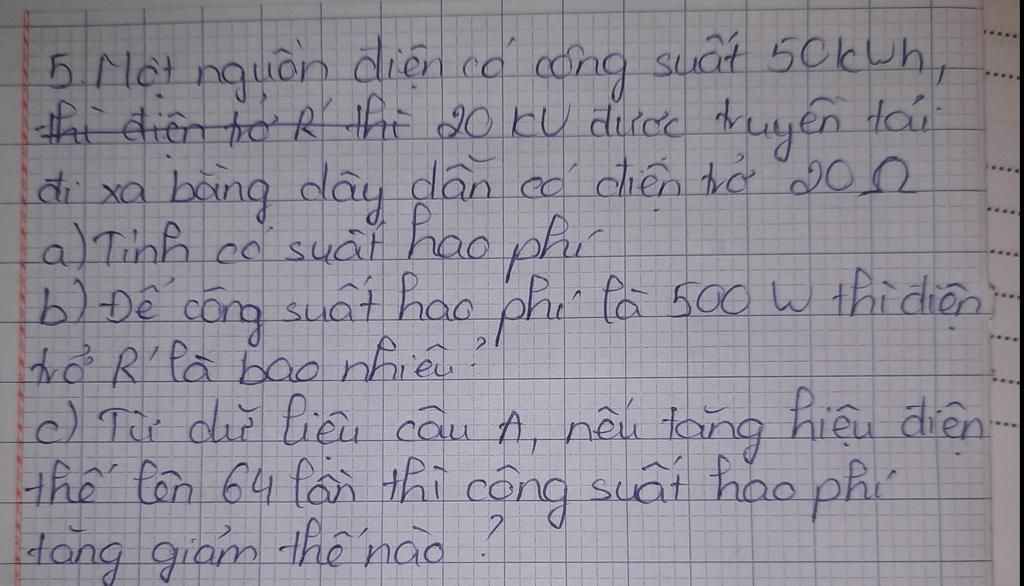 5. Một nguồn điện có công suất 50kWh,
thì điện trở R' thì 20 KV được truyền tải
đi xa bằng dây dẫn có điện trở 20 Ω
a) Tính cô suất hao phí
b) Để công suất hao phí là 500 W thì điện
trở R' là bao nhiêu?
c) Từ dữ liệu câu A, nếu tăng hiệu điện
thế lên 64 lần thì công suất hao phí
tăng giảm thế nào?